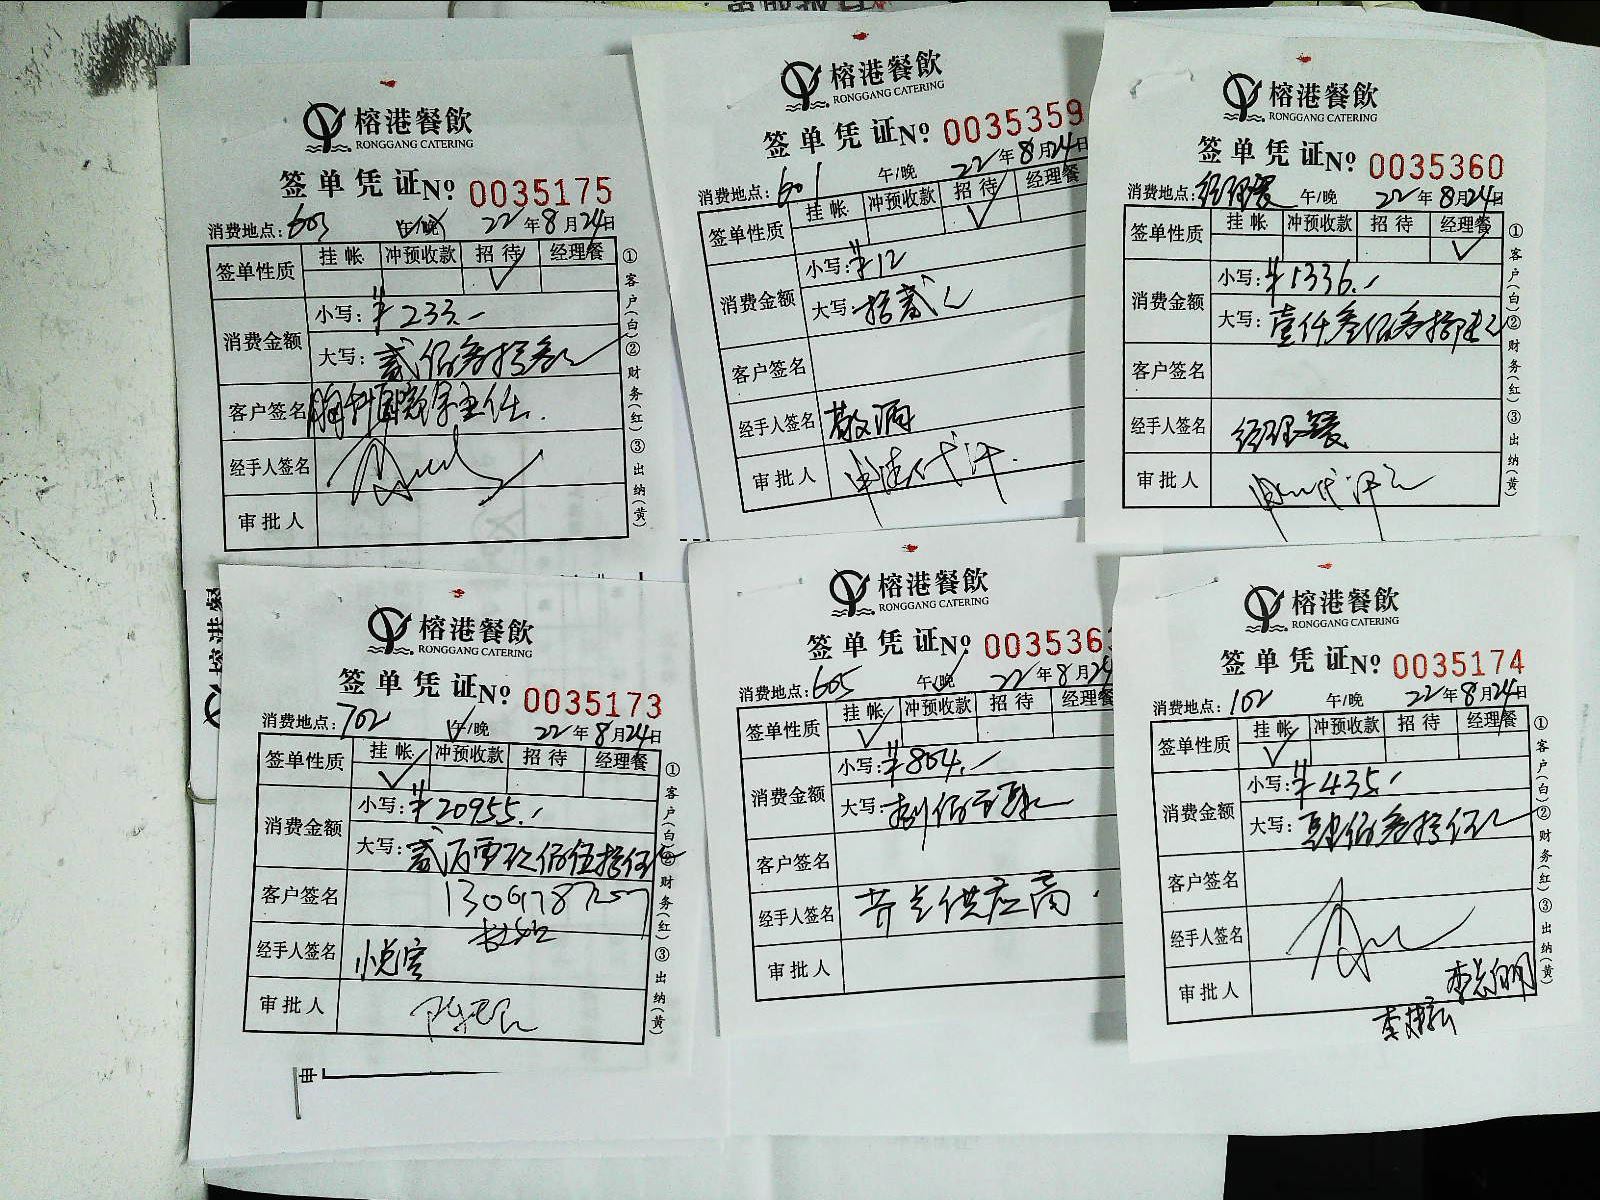 榕港餐飲
RONGGANG CATERING
签单凭证No 0035175
消费地点: 603 午/晚 22年8月24日
签单性质 挂帐 冲预收款 招待 经理餐
✓
消费金额 小写: ¥233.-
大写: 贰佰叁拾叁元
客户签名 胸科医院徐主任.
经手人签名
审批人
①客户(白)②财务(红)③出纳(黄)
榕港餐飲
RONGGANG CATERING
签单凭证No 0035359
消费地点: 601 午/晚 22年8月24日
签单性质 挂帐 冲预收款 招待 经理餐
✓
消费金额 小写: ¥12
大写: 拾贰元
客户签名
经手人签名
审批人
榕港餐飲
RONGGANG CATERING
签单凭证No 0035360
消费地点: 经理餐 午/晚 22年8月24日
签单性质 挂帐 冲预收款 招待 经理餐
✓
消费金额 小写: ¥1336.-
大写: 壹仟叁佰叁拾陆元
客户签名
经手人签名 经理餐
审批人
①客户(白)②财务(红)③出纳(黄)
榕港餐飲
RONGGANG CATERING
签单凭证No 0035173
消费地点: 702 午/晚 22年8月24日
签单性质 挂帐 冲预收款 招待 经理餐
✓
消费金额 小写: ¥20955.-
大写: 贰万零玖佰伍拾伍元
客户签名
经手人签名 小悦
审批人
①客户(白)②财务(红)③出纳(黄)
榕港餐飲
RONGGANG CATERING
签单凭证No 003536
消费地点: 605 午/晚 22年8月24
签单性质 挂帐 冲预收款 招待 经理餐
✓
消费金额 小写: ¥804.-
大写: 捌佰零肆元
客户签名
经手人签名 供应商
审批人
榕港餐飲
RONGGANG CATERING
签单凭证No 0035174
消费地点: 102 午/晚 22年8月24日
签单性质 挂帐 冲预收款 招待 经理餐
✓
消费金额 小写: ¥435.-
大写: 肆佰叁拾伍元
客户签名
经手人签名
审批人
①客户(白)②财务(红)③出纳(黄)